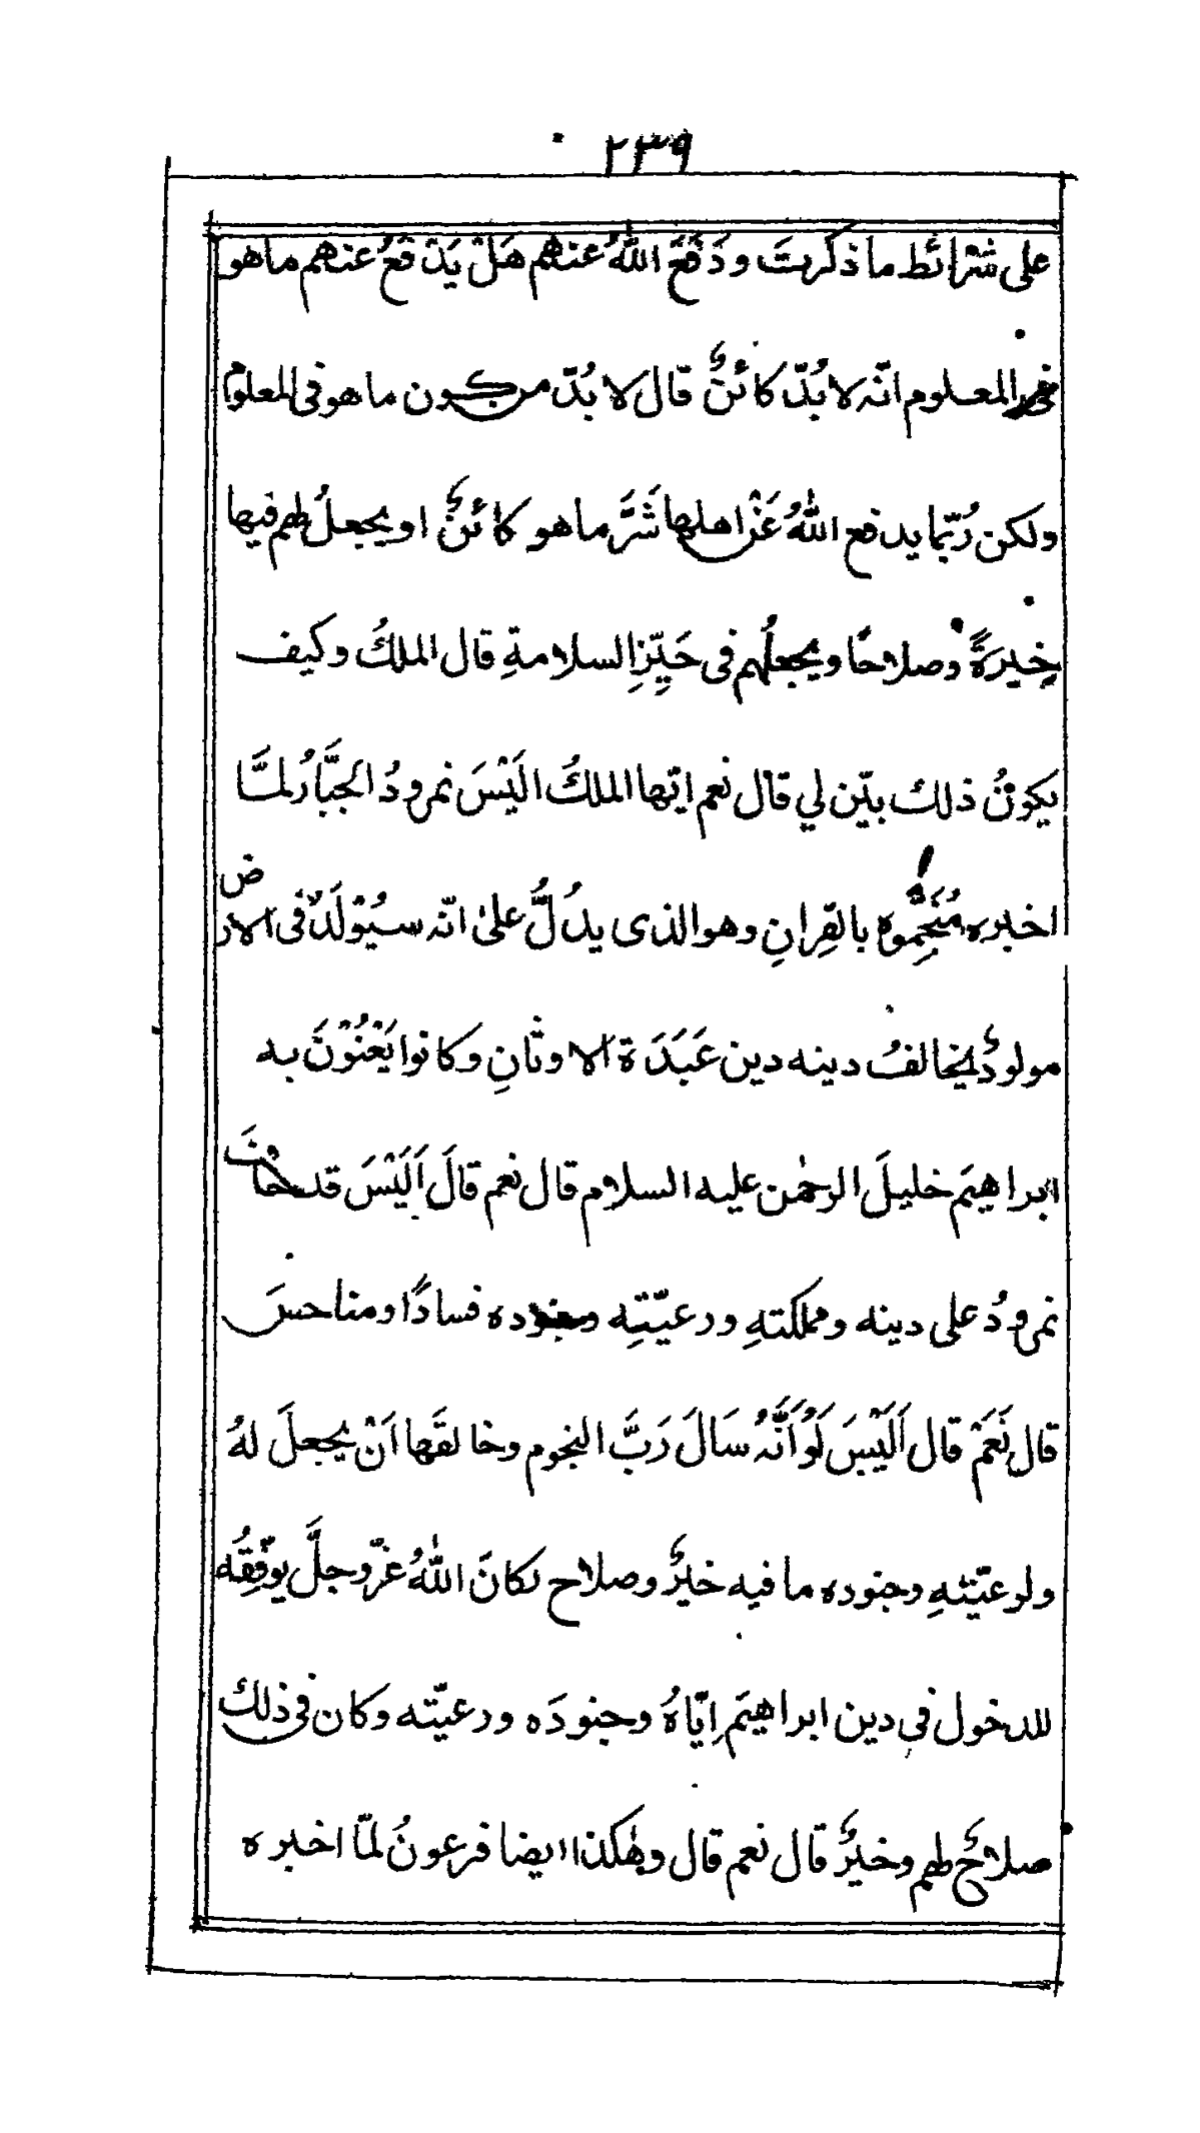 ٢٣٩
على شرائط ما ذكرتَ ودَفَعَ اللّٰهُ عنهم هَلْ يَدْفَعُ عنهم ما هو
فى المعلوم انّه لا بُدّ كائنٌ قال لا بُدّ من كون ما هو فى المعلوم
ولكن رُبّما يدفع اللّٰهُ عَنْ اهلها شَرَّ ما هو كائنٌ او يجعلُ لهم فيها
خِيرَةً وصلاحًا ويجعلُهم فى حَيِّزِ السلامةِ قال الملكُ وكيف
يكونُ ذلك بيّن لي قال نعم ايّها الملكُ الَيْسَ نمرودُ الجَبَّارُ لمَّا
اخبره مُنَجِّموه بالقِرانِ وهو الذى يدُلُّ علىٰ انّه سيُوْلَدُ فى الارض
مولودٌ يخالفُ دينه دين عَبَدَة الاوثانِ وكانوا يَعْنُوْنَ به
ابراهيمَ خليلَ الرحمٰن عليه السلام قال نعم قالَ اَلَيْسَ قد خافَ
نمرودُ على دينه ومملكتهِ ورعيّتِه وجنوده فسادًا ومناحسَ
قال نَعَمْ قال اَلَيْسَ لَوْ اَنَّهُ سَالَ رَبَّ النجوم وخالقَها اَنْ يجعلَ لهُ
ولرعيّتهِ وجنوده ما فيه خيرٌ وصلاح لكانَ اللّٰهُ عزّ وجلَّ يوَفِّقُه
للدخول فى دين ابراهيمَ اِيّاهُ وجنودَه ورعيّته وكان فى ذلك
صلاحٌ لهم وخيرٌ قال نعم قال وهٰكذا ايضا فرعونُ لمّا اخبره